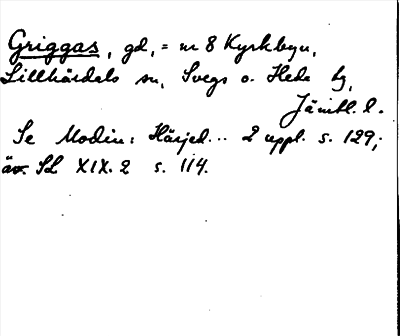 Griggas, gd, = nr 8 Kyrkbyn,
Lillhärdals sn, Svegs o. Hede tg,
Jämtl. l.
Se Modin: Härjed... 2 uppl. s. 129,
äv. SL XIX. 2 s. 114.